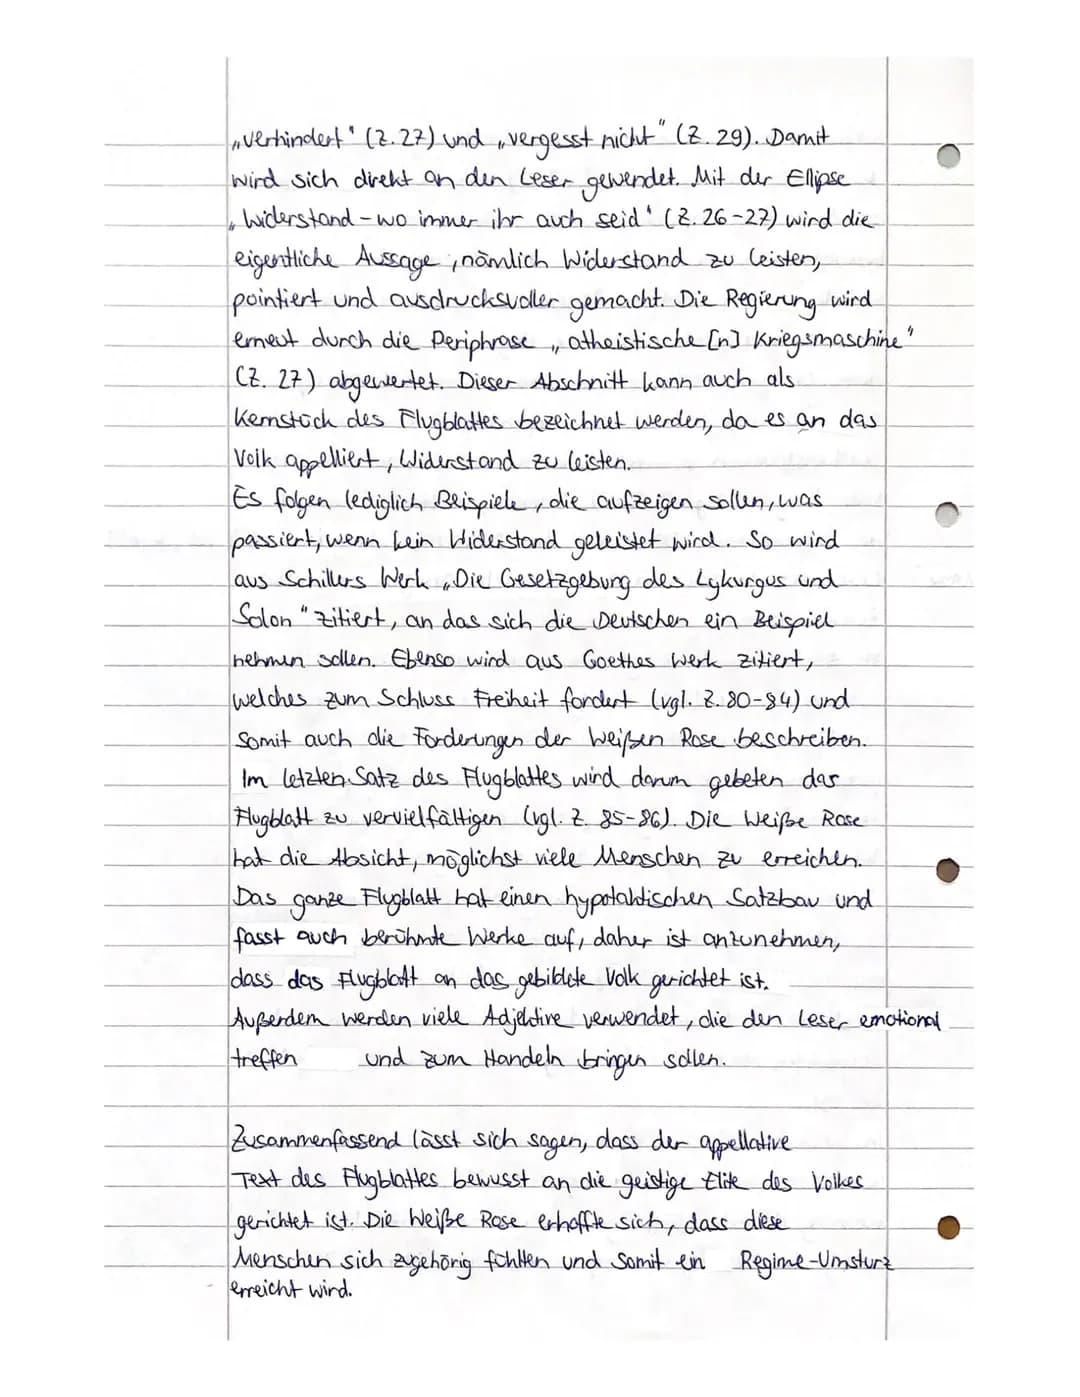 „verhindert" (Z. 27) und „vergesst nicht" (Z. 29). Damit
wird sich direkt an den Leser gewendet. Mit der Ellipse
„Widerstand – wo immer ihr auch seid" (Z. 26-27) wird die
eigentliche Aussage, nämlich Widerstand zu leisten,
pointiert und ausdrucksvoller gemacht. Die Regierung wird
erneut durch die Periphrase „atheistische [n] Kriegsmaschine"
(Z. 27) abgewertet. Dieser Abschnitt kann auch als
Kernstück des Flugblattes bezeichnet werden, da es an das
Volk appelliert, Widerstand zu leisten.
Es folgen lediglich Beispiele, die aufzeigen sollen, was
passiert, wenn kein Widerstand geleistet wird. So wird
aus Schillers Werk „Die Gesetzgebung des Lykurgus und
Solon" zitiert, an das sich die Deutschen ein Beispiel
nehmen sollen. Ebenso wird aus Goethes Werk zitiert,
welches zum Schluss Freiheit fordert (vgl. Z. 80-84) und
somit auch die Forderungen der Weißen Rose beschreiben.
Im letzten Satz des Flugblattes wird darum gebeten das
Flugblatt zu vervielfältigen (vgl. Z. 85-86). Die Weiße Rose
hat die Absicht, möglichst viele Menschen zu erreichen.
Das ganze Flugblatt hat einen hypotaktischen Satzbau und
fasst auch berühmte Werke auf, daher ist anzunehmen,
dass das Flugblatt an das gebildete Volk gerichtet ist.
Außerdem werden viele Adjektive verwendet, die den Leser emotional
treffen und zum Handeln bringen sollen.
Zusammenfassend lässt sich sagen, dass der appellative
Text des Flugblattes bewusst an die geistige Elite des Volkes
gerichtet ist. Die Weiße Rose erhoffte sich, dass diese
Menschen sich zugehörig fühlten und somit ein Regime-Umsturz
erreicht wird.